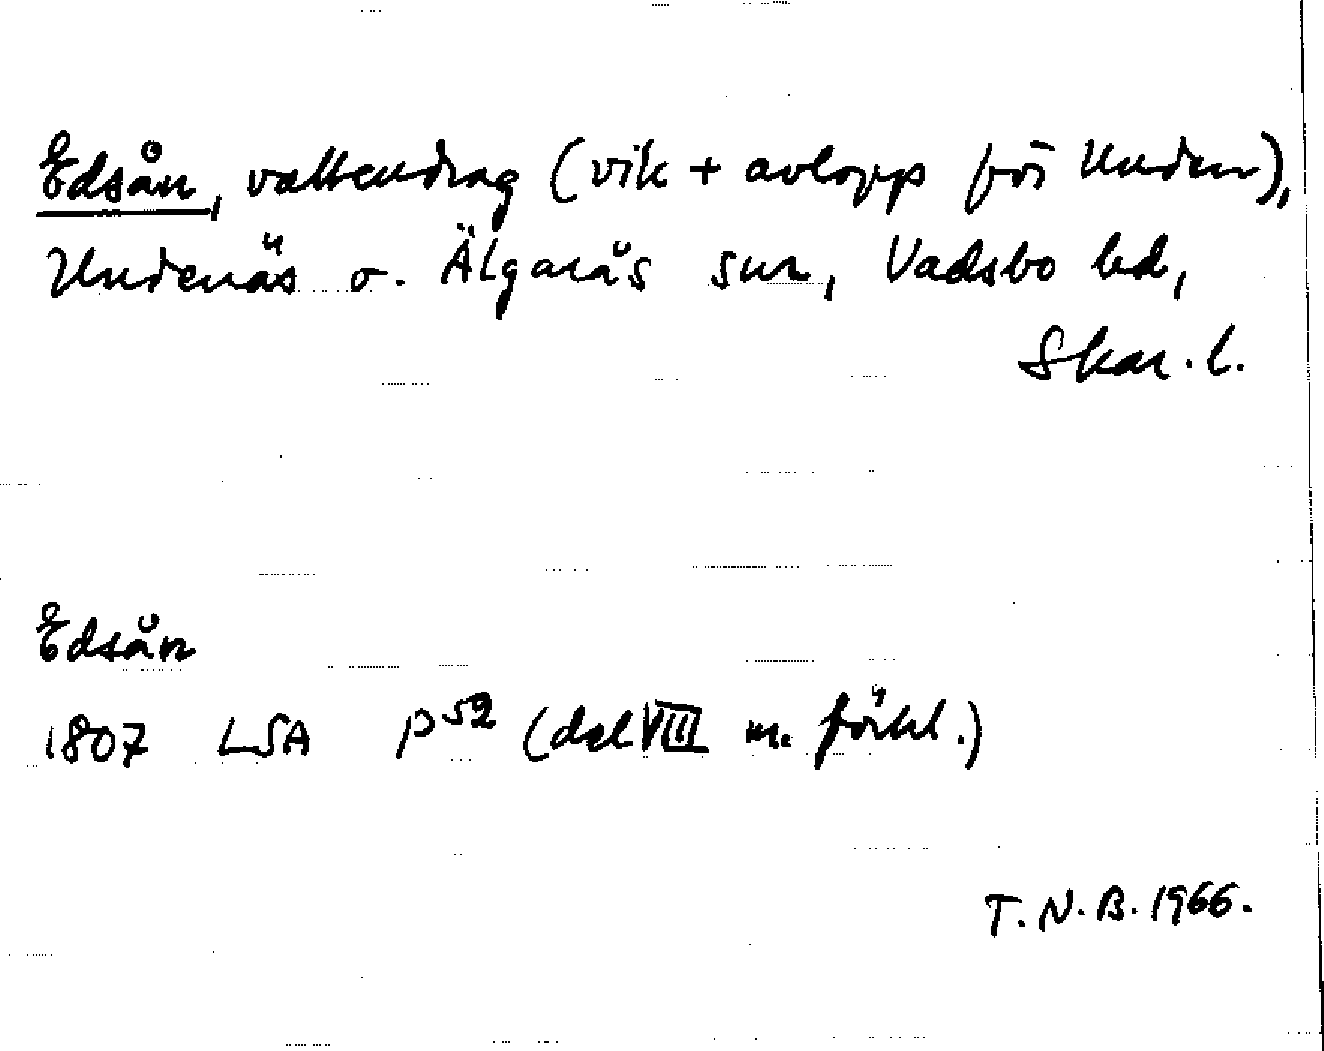 Edsån, vattendrag (vik + avlopp för Unden),
Undenäs o. Älgarås snr, Vadsbo hd,
Skar. l.
Edsån
1807 LSA P 52 (del VIII m. förkl.)
T. N. B. 1966.